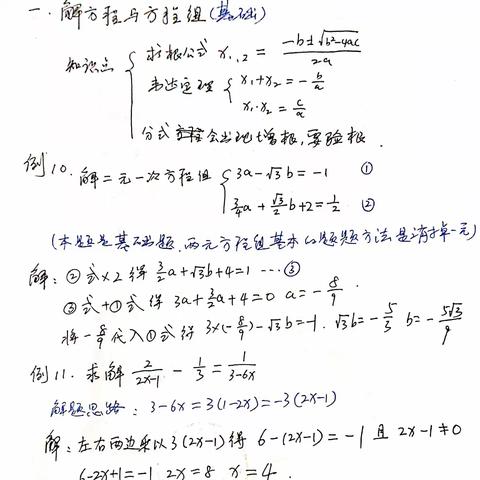 一. 解方程与方程组(基础)
知识点 { 求根公式 x₁,₂ = (-b±√(b²-4ac))/2a
韦达定理 { x₁+x₂ = -b/a
x₁·x₂ = c/a
分式方程会出现增根,要验根.
例10. 解二元一次方程组 { 3a-√3b=-1 ①
3/4a+√3/2b+2=1/2 ②
(本题是基础题,两元方程组基本解题方法是消掉一元)
解:②式×2得 3/2a+√3b+4=1 ···③
③式+①式得 3a+3/2a+4=0 a=-8/9.
将-8/9代入①式得 3×(-8/9)-√3b=-1. √3b=-5/3 b=-5√3/9
例11. 求解 2/(2x-1) - 1/3 = 1/(3-6x)
解题思路:3-6x=3(1-2x)=-3(2x-1)
解:左右两边乘以3(2x-1)得 6-(2x-1)=-1 且 2x-1≠0
6-2x+1=-1 2x=8 x=4.